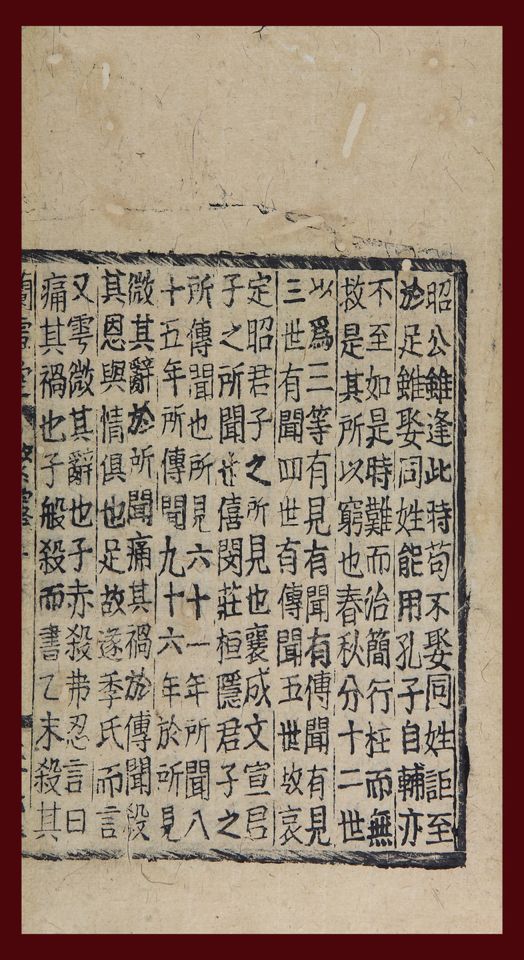 昭公雖逢此時苟不娶同姓詎至
於足雖娶同姓能用孔子自輔亦
不至如是時難而治簡行枉而無
故是其所以窮也春秋分十二世
以爲三等有見有聞有傳聞有見
三世有聞四世有傳聞五世故哀
定昭君子之所見也襄成文宣君
子之所聞也僖閔莊桓隱君子之
所傳聞也所見六十一年所聞八
十五年所傳聞九十六年於所見
微其辭於所聞痛其禍於傳聞殺
其恩與情俱也足故逐季氏而言
又雩微其辭也子赤殺弗忍言曰
痛其禍也子般殺而書乙未殺其
蘭雪堂